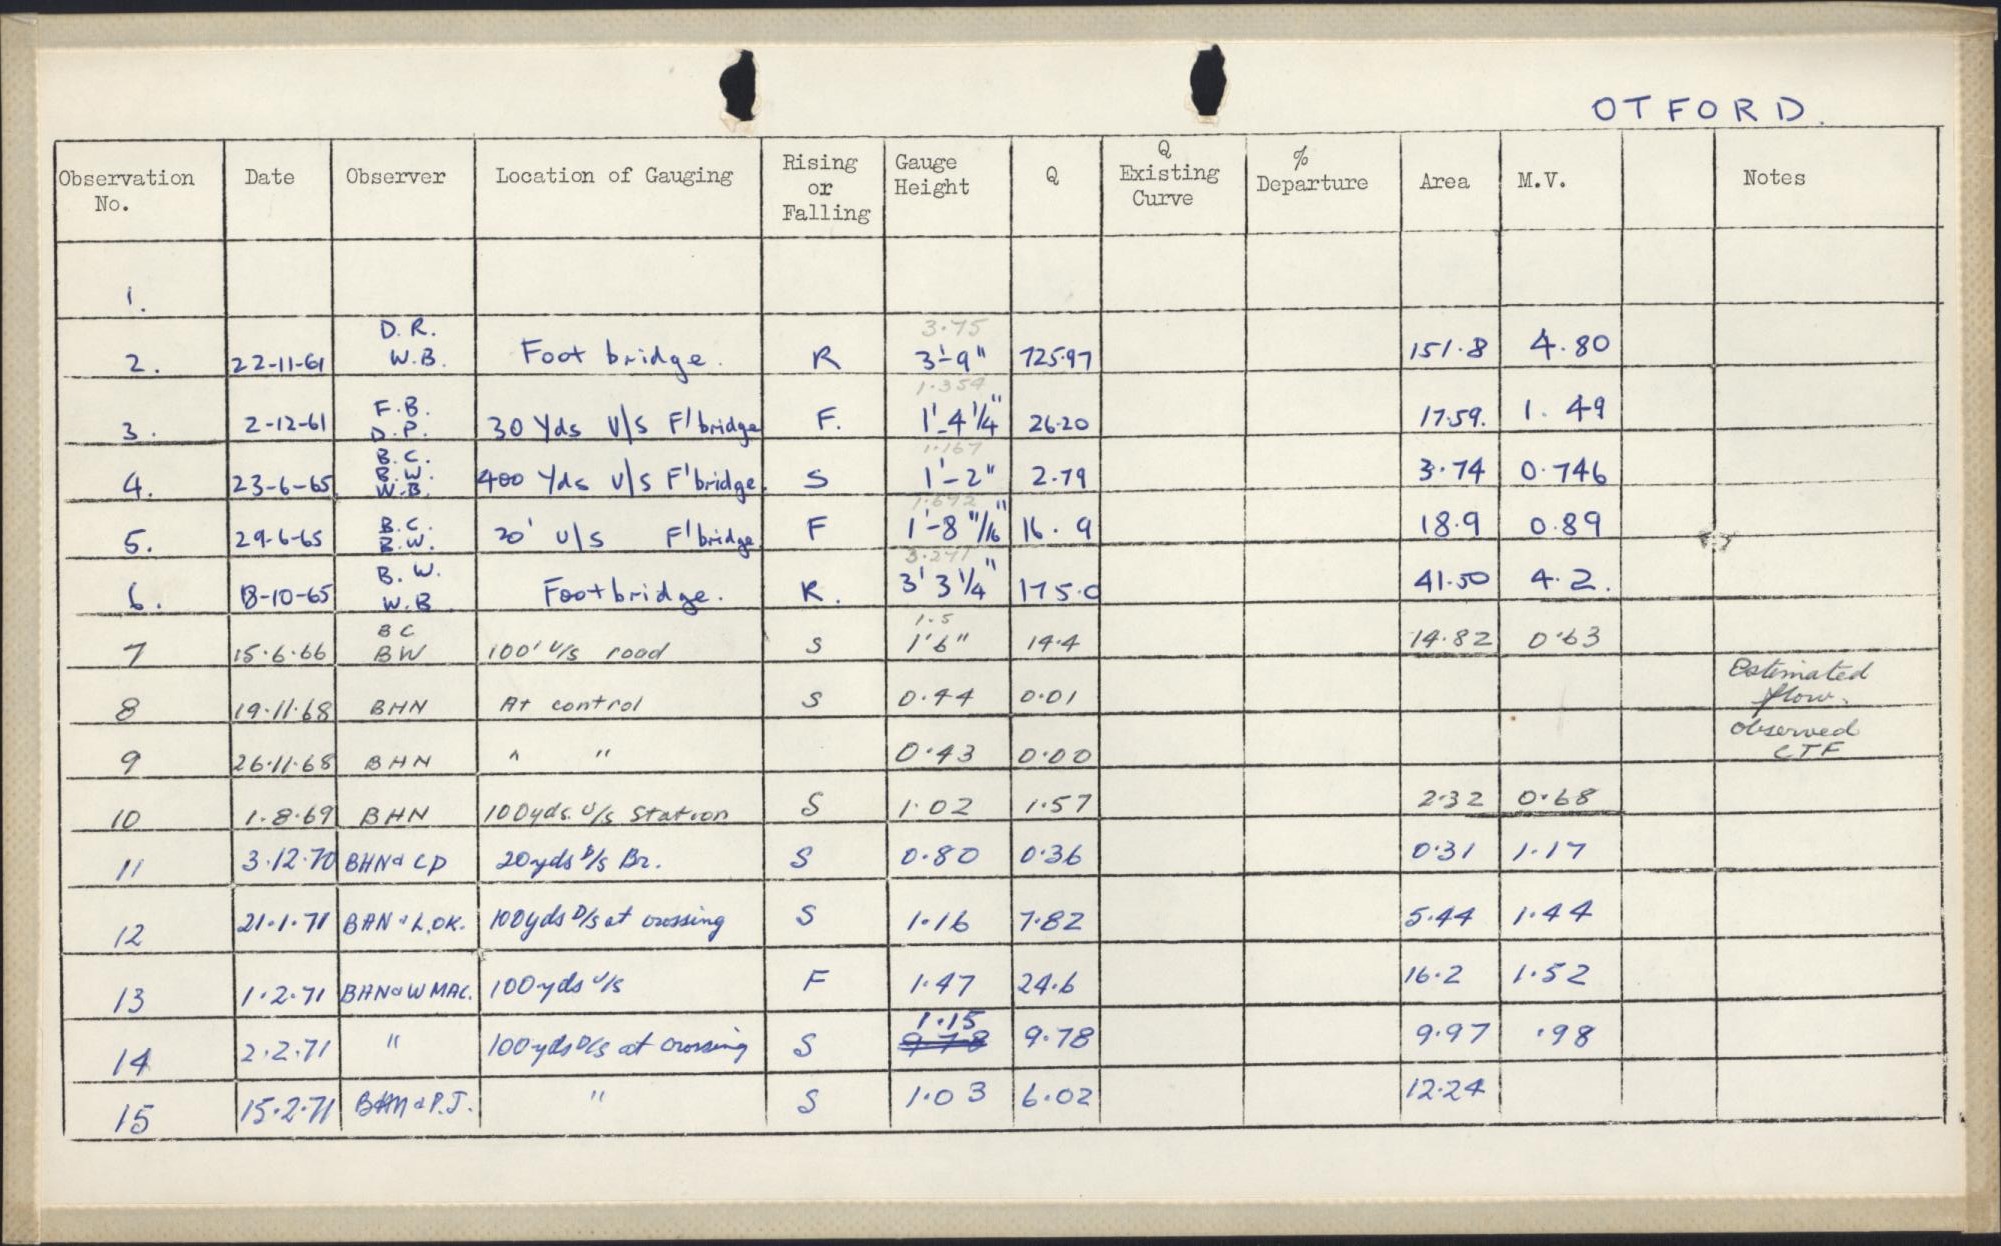 OTFORD.
Observation No. Date Observer Location of Gauging Rising or Falling Gauge Height Q Q Existing Curve % Departure Area M.V. Notes
1.
2. 22-11-61 D.R. W.B. Foot bridge. R 3.75 3'-9" 725.97 151.8 4.80
3. 2-12-61 F.B. D.P. 30 Yds U/S F'bridge F. 1.354 1'-4 1/4" 26.20 17.59. 1.49
4. 23-6-65 B.C. B.W. W.B. 400 Yds U/S F'bridge. S 1.167 1'-2" 2.79 3.74 0.746
5. 29-6-65 B.C. B.W. 20' U/S F'bridge F 1'-8 11/16" 16.9 18.9 0.89
6. 18-10-65 B.W. W.B Footbridge. R. 3.271 3' 3 1/4" 175.0 41.50 4.2.
7 15.6.66 BC BW 100' U/S road S 1.5 1'6" 14.4 14.82 0.63
8 19.11.68 BHN At control S 0.44 0.01 Estimated flow.
9 26.11.68 BHN " " 0.43 0.00 observed CTF
10 1.8.69 BHN 100yds. U/S Station S 1.02 1.57 2.32 0.68
11 3.12.70 BHN & CD 20yds D/S Br. S 0.80 0.36 0.31 1.17
12 21.1.71 BHN & L.OK. 100yds D/S at crossing S 1.16 7.82 5.44 1.44
13 1.2.71 BHN & W MAC. 100yds U/S F 1.47 24.6 16.2 1.52
14 2.2.71 " 100yds D/S at crossing S 1.15 9.78 9.78 9.97 .98
15 15.2.71 BHN & P.J. " S 1.03 6.02 12.24